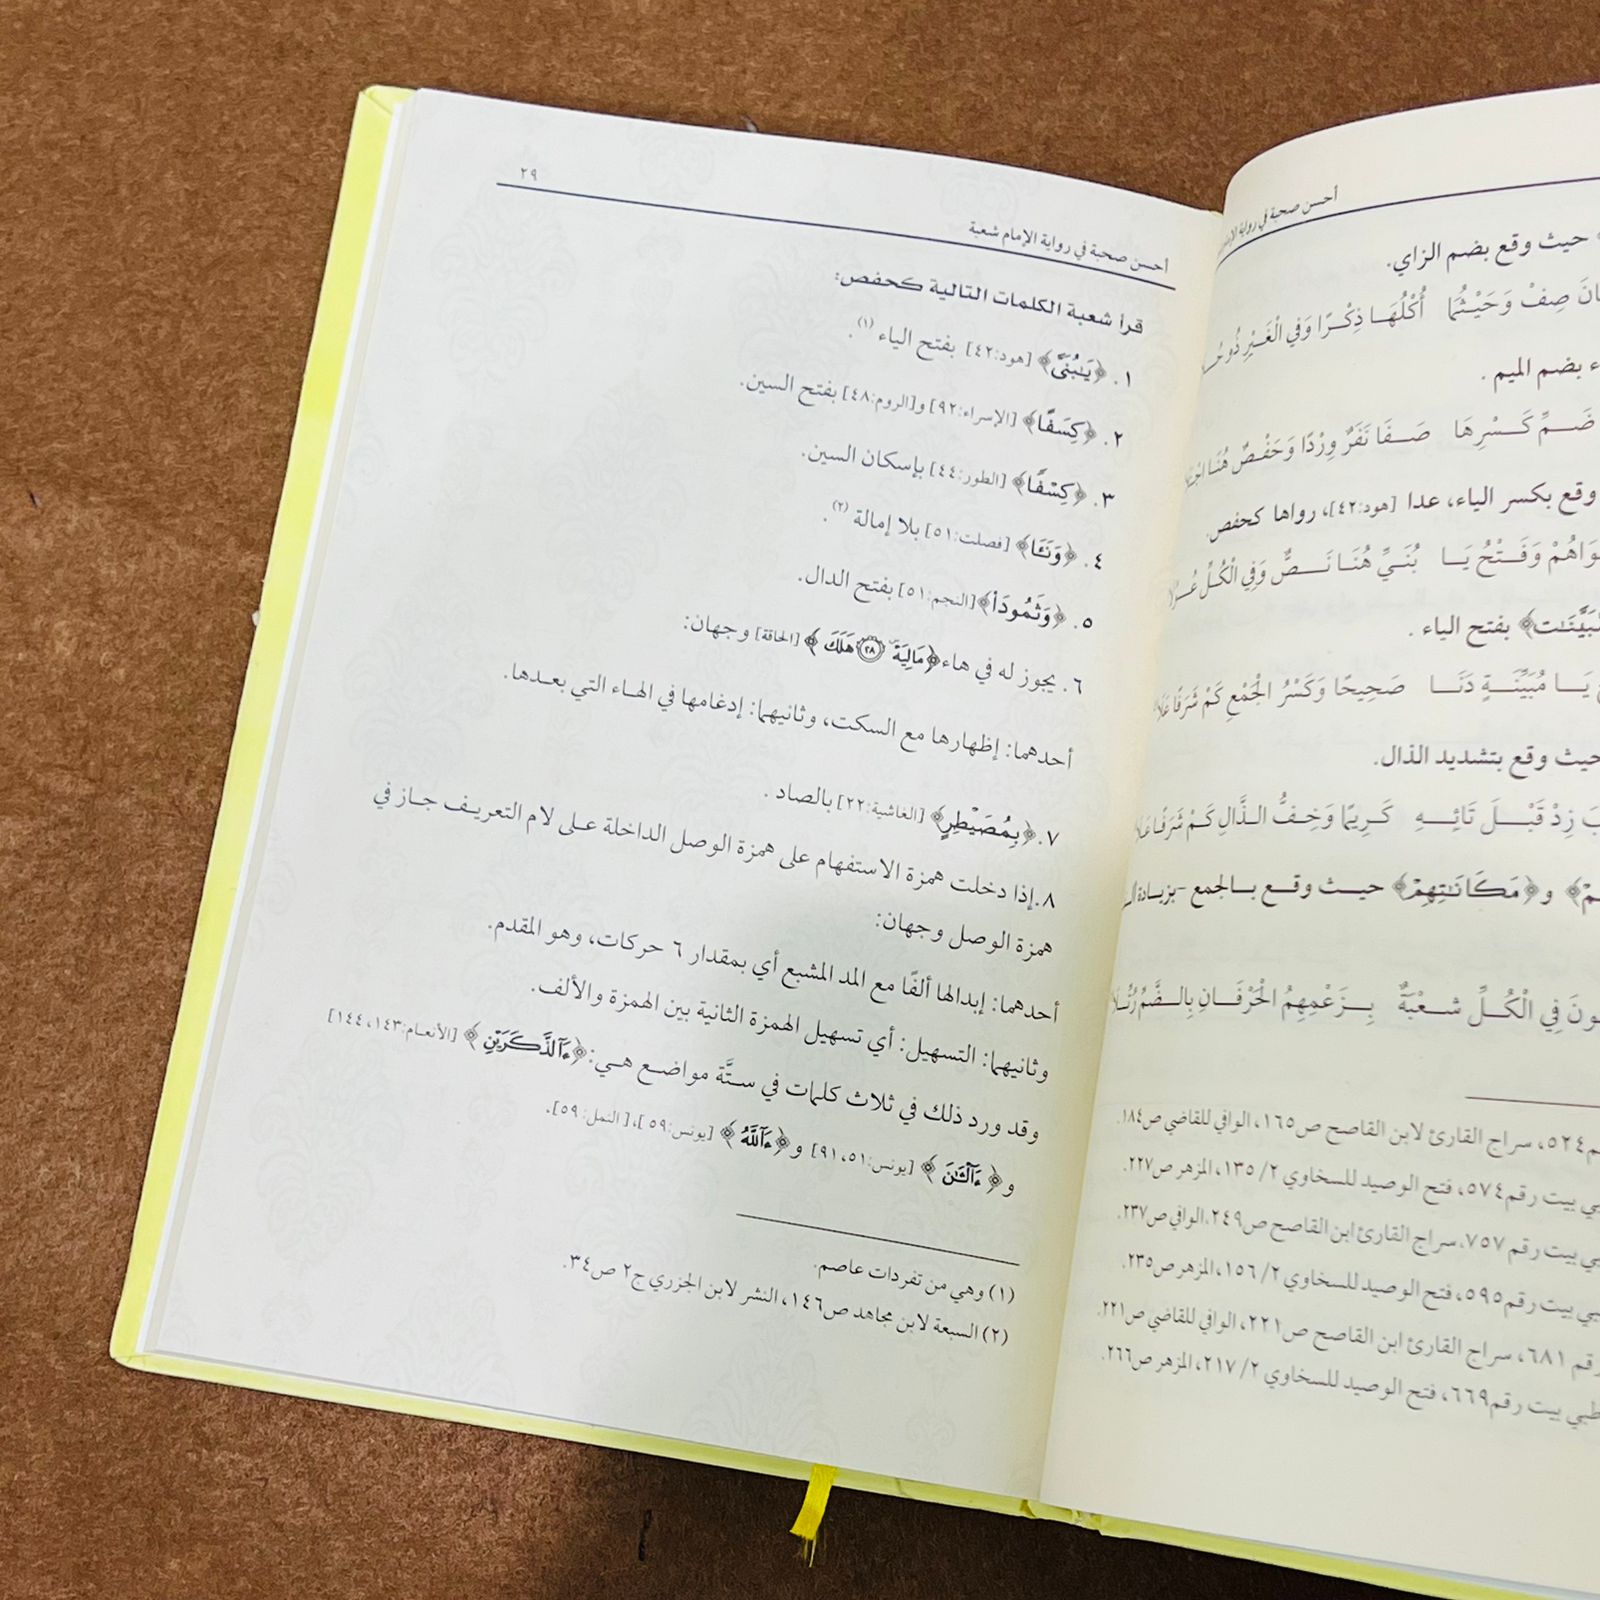 أحسن صحبة في رواية الإمام
حيث وقع بضم الزاي.
صِفْ وَحَيْثُمَا أُكْلُهَا ذِكْرًا وَفِي الْغَيْرِ ذُو
بضم الميم .
ضَمِّ كَسْرِهَا صَفَا نَفَرٌ وِرْدًا وَحَفْصٌ هُنَا
وقع بكسر الياء، عدا [هود:٤٢]، رواها كحفص.
وَفَتْحُ يَا بُنَيِّ هُنَا نَصٌّ وَفِي الْكُلِّ
بفتح الياء .
يَا مُبَيِّنَةٍ دَنَا صَحِيحًا وَكَسْرُ الْجَمْعِ كَمْ شَرَفًا عَلَا
حيث وقع بتشديد الذال.
زِدْ قَبْلَ تَائِهِ كَرِيمًا وَخِفُّ الذَّالِ كَمْ شَرَفًا عَلَا
و﴿مَكَانَٰتِهِمْ﴾ حيث وقع بالجمع -بزيادة
فِي الْكُلِّ شُعْبَةٌ بِزَعْمِهِمُ الْحَرْفَانِ بِالضَّمِّ رُتِّلَا
٥٢٤، سراج القارئ لابن القاصح ص١٦٥، الوافي للقاضي ص١٨٤.
بيت رقم ٥٧٤، فتح الوصيد للسخاوي ٢/ ١٣٥، المزهر ص٢٢٧.
بيت رقم ٧٥٧، سراج القارئ ابن القاصح ص٢٤٩، الوافي ص٢٣٧.
بيت رقم ٥٩٥، فتح الوصيد للسخاوي ٢/ ١٥٦، المزهر ص٢٣٥.
رقم ٦٨١، سراج القارئ ابن القاصح ص٢٢١، الوافي للقاضي ص٢٢١.
بيت رقم ٦٦٩، فتح الوصيد للسخاوي ٢/ ٢١٧، المزهر ص٢٦٦.
أحسن صحبة في رواية الإمام شعبة
٢٩
قرأ شعبة الكلمات التالية كحفص:
١. ﴿يَٰبُنَيَّ﴾ [هود:٤٢] بفتح الياء (١).
٢. ﴿كِسَفًا﴾ [الإسراء:٩٢] و[الروم:٤٨] بفتح السين.
٣. ﴿كِسْفًا﴾ [الطور:٤٤] بإسكان السين.
٤. ﴿وَنَـَٔا﴾ [فصلت:٥١] بلا إمالة (٢).
٥. ﴿وَثَمُودَاْ﴾ [النجم:٥١] بفتح الدال.
٦. يجوز له في هاء ﴿مَالِيَهْۜ ٢٨ هَلَكَ﴾ [الحاقة] وجهان:
أحدهما: إظهارها مع السكت، وثانيهما: إدغامها في الهاء التي بعدها.
٧. ﴿بِمُصَيْطِرٍ﴾ [الغاشية:٢٢] بالصاد .
٨. إذا دخلت همزة الاستفهام على همزة الوصل الداخلة على لام التعريف جاز في
همزة الوصل وجهان:
أحدهما: إبدالها ألفًا مع المد المشبع أي بمقدار ٦ حركات، وهو المقدم.
وثانيهما: التسهيل: أي تسهيل الهمزة الثانية بين الهمزة والألف.
وقد ورد ذلك في ثلاث كلمات في ستَّة مواضع هي: ﴿ءَآلذَّكَرَيْنِ﴾ [الأنعام:١٤٣، ١٤٤]
و﴿ءَآلْـَٰٔنَ﴾ [يونس:٥١، ٩١] و﴿ءَآللَّهُ﴾ [يونس:٥٩]، [النمل:٥٩].
(١) وهي من تفردات عاصم.
(٢) السبعة لابن مجاهد ص١٤٦، النشر لابن الجزري ج٢ ص٣٤.